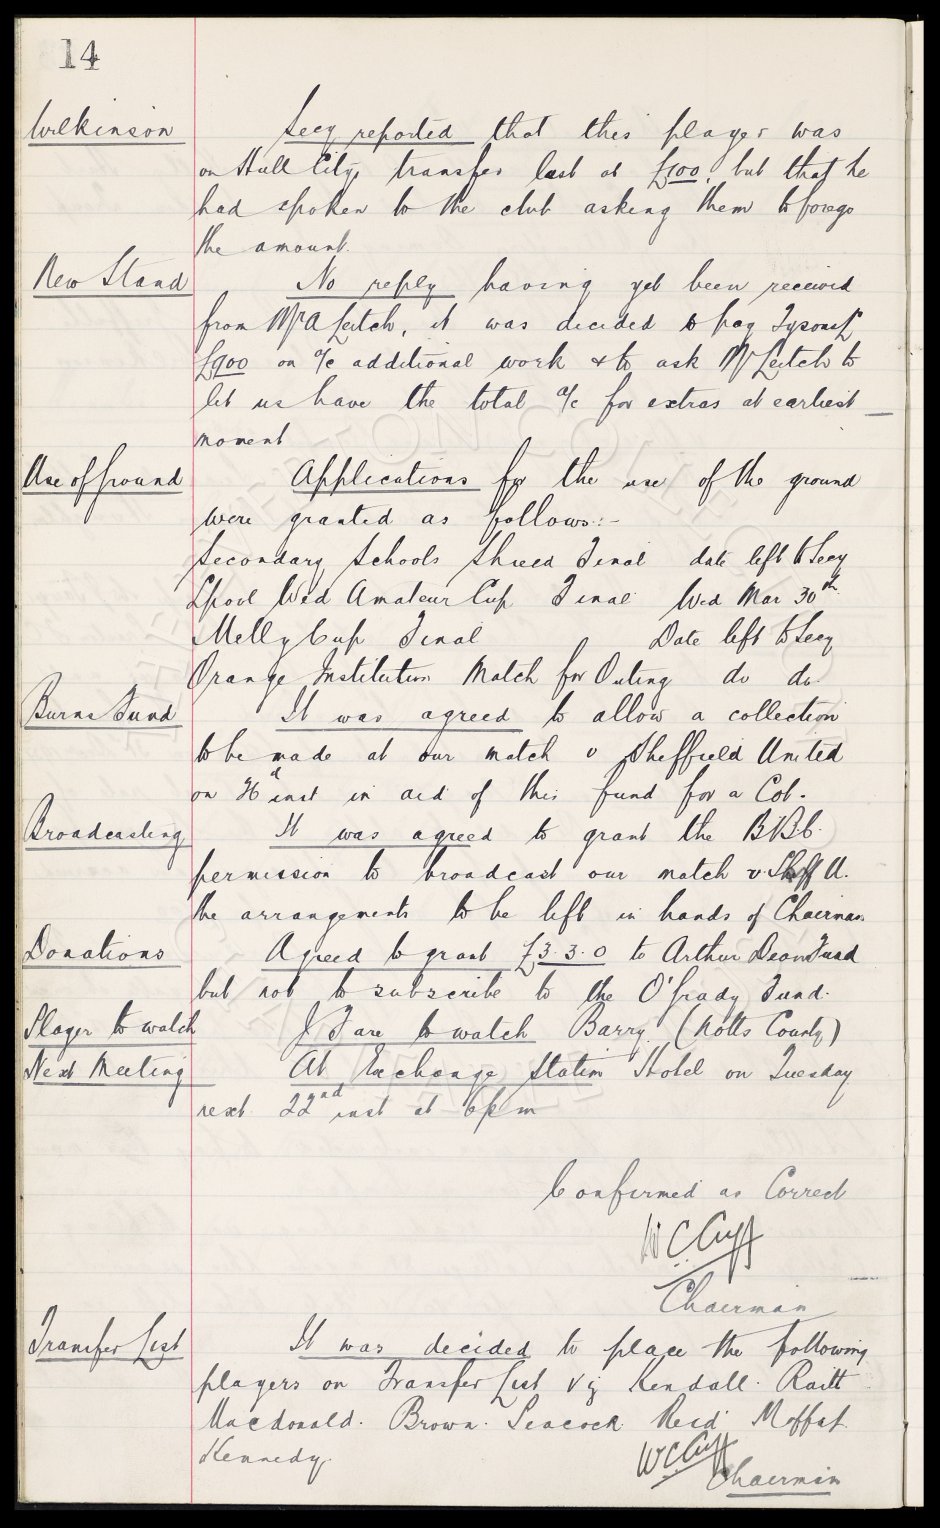 14
Wilkinson Secy reported that this player was
on Hull City's transfer last at £100, but that he
had spoken to the club asking them to forego
the amount.
New Stand No reply having yet been received
from Mr A Leitch, it was decided to pay Tysons
£900 on a/c additional work & to ask Mr Leitch to
let us have the total a/c for extras at earliest
moment
Use of Ground Applications for the use of the ground
were granted as follows:-
Secondary Schools Shield Final date left to Secy
L'pool Wed Amateur Cup Final Wed Mar 30th
Melly Cup Final Date left to Secy
Orange Institution Match for Outing do do.
Burns Fund It was agreed to allow a collection
to be made at our match v Sheffield United
on inst in aid of this fund for a Col.
Broadcasting It was agreed to grant the B.B.C.
permission to broadcast our match v. Sheff U.
the arrangements to be left in hands of Chairman
Donations Agreed to grant £3.3.0 to Arthur Dean Fund
but not to subscribe to the O'Grady Fund.
Player to watch J Fare to watch Barry (Notts County)
Next Meeting At Exchange Station Hotel on Tuesday
next 22nd inst at 6pm
Confirmed as Correct
W C Cuff
Chairman
Transfer List It was decided to place the following
players on Transfer List viz Kendall. Raitt
Macdonald. Brown. Peacock. Reid. Moffat.
Kennedy.
W C Cuff
Chairman